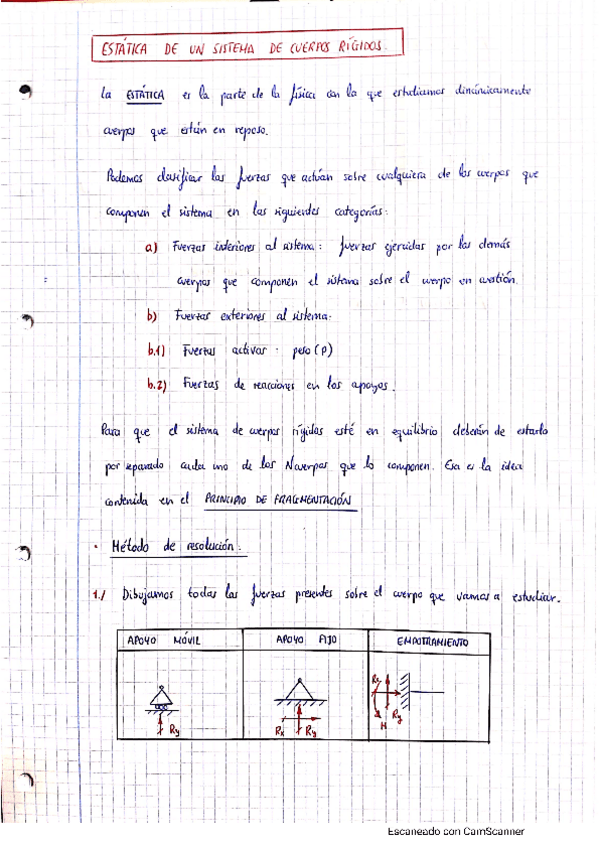 ESTÁTICA DE UN SISTEMA DE CUERPOS RÍGIDOS.
La ESTÁTICA es la parte de la física con la que estudiamos dinámicamente
cuerpos que están en reposo.
Podemos clasificar las fuerzas que actúan sobre cualquiera de los cuerpos que
componen el sistema en las siguientes categorías:
a) Fuerzas interiores al sistema: fuerzas ejercidas por las demás
cuerpos que componen el sistema sobre el cuerpo en cuestión.
b) Fuerzas exteriores al sistema.
b.1) Fuerzas activas: peso (P)
b.2) Fuerzas de reacciones en los apoyos.
Para que el sistema de cuerpos rígidos esté en equilibrio deberán de estarlo
por separado cada uno de los N cuerpos que lo componen. Esa es la idea
contenida en el PRINCIPIO DE FRAGMENTACIÓN
· Método de resolución:
1./ Dibujamos todas las fuerzas presentes sobre el cuerpo que vamos a estudiar.
APOYO MÓVIL APOYO FIJO EMPOTRAMIENTO
Ry Rx Ry Rx Ry M
Escaneado con CamScanner